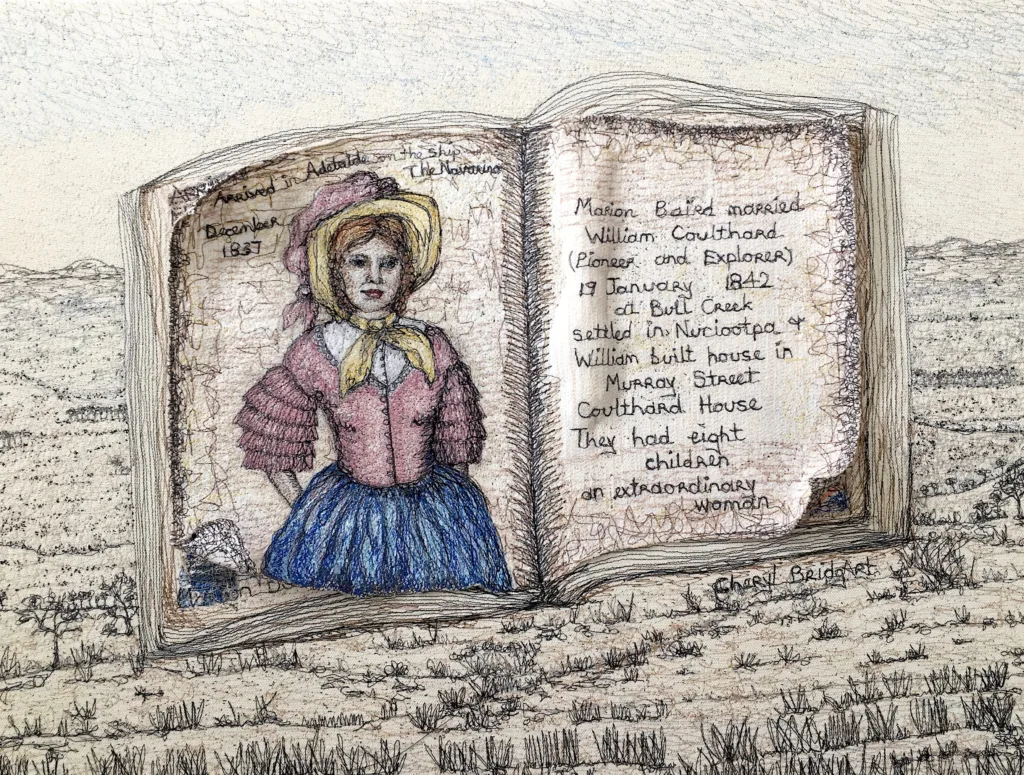 Arrived in Adelaide on the ship
The Navarino
December
1837
Marion Baird married
William Coulthard
(Pioneer and Explorer)
19 January 1842
at Bull Creek
settled in Nuriootpa &
William built house in
Murray Street
Coulthard House
They had eight
children
an extraordinary
woman
Cheryl Bridgart